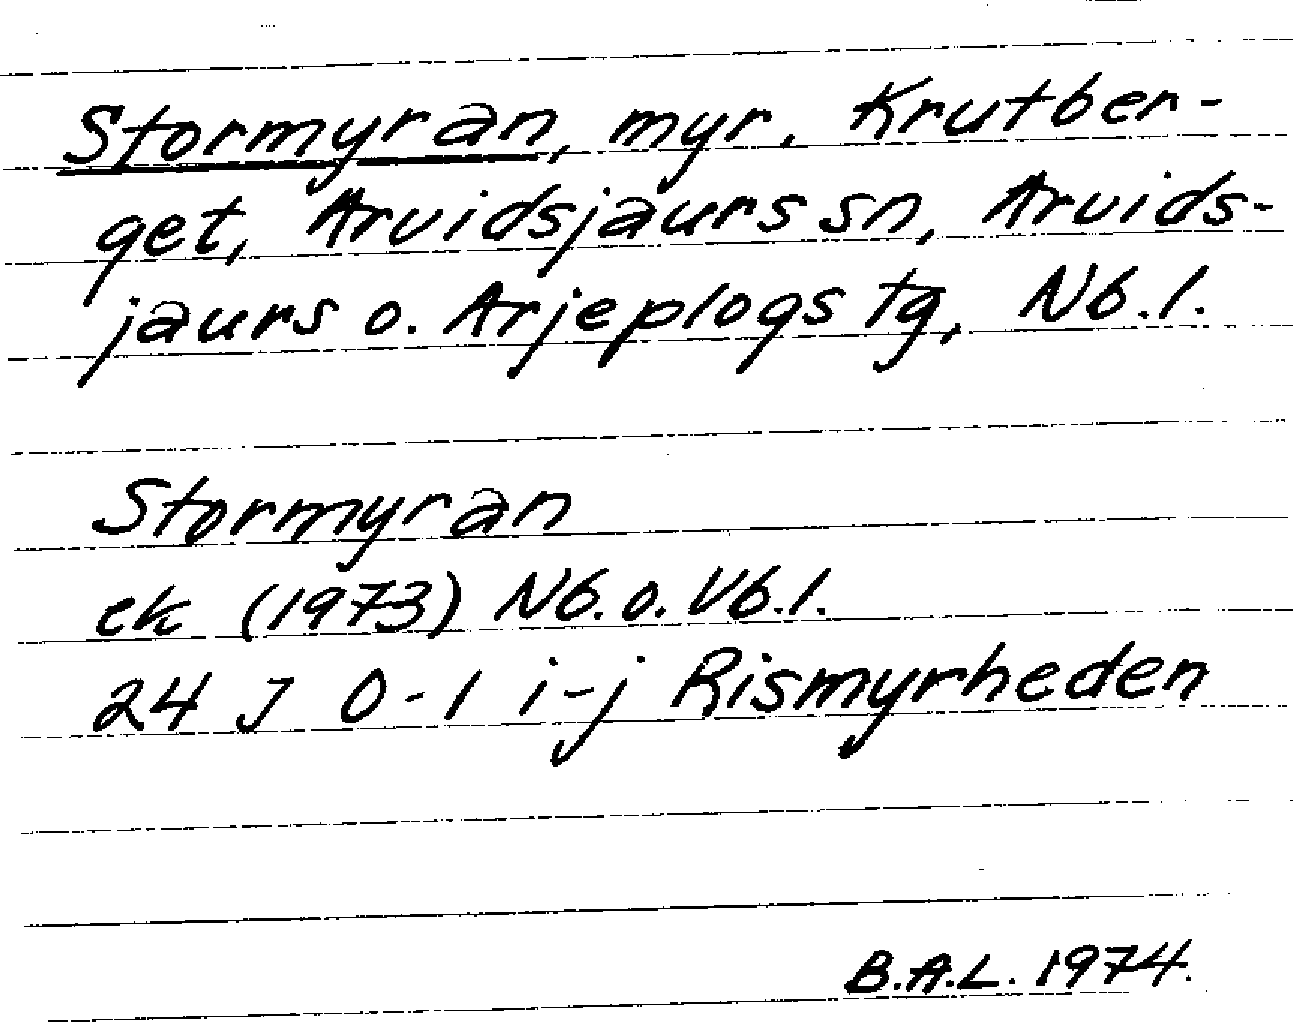 Stormyran, myr. Krutber-
get, Arvidsjaurs sn, Arvids-
jaurs o. Arjeplogs tg, Nb.l.
Stormyran
ek (1973) Nb.o.Vb.l.
24 J 0-1 i-j Rismyrheden
B.A.L. 1974.